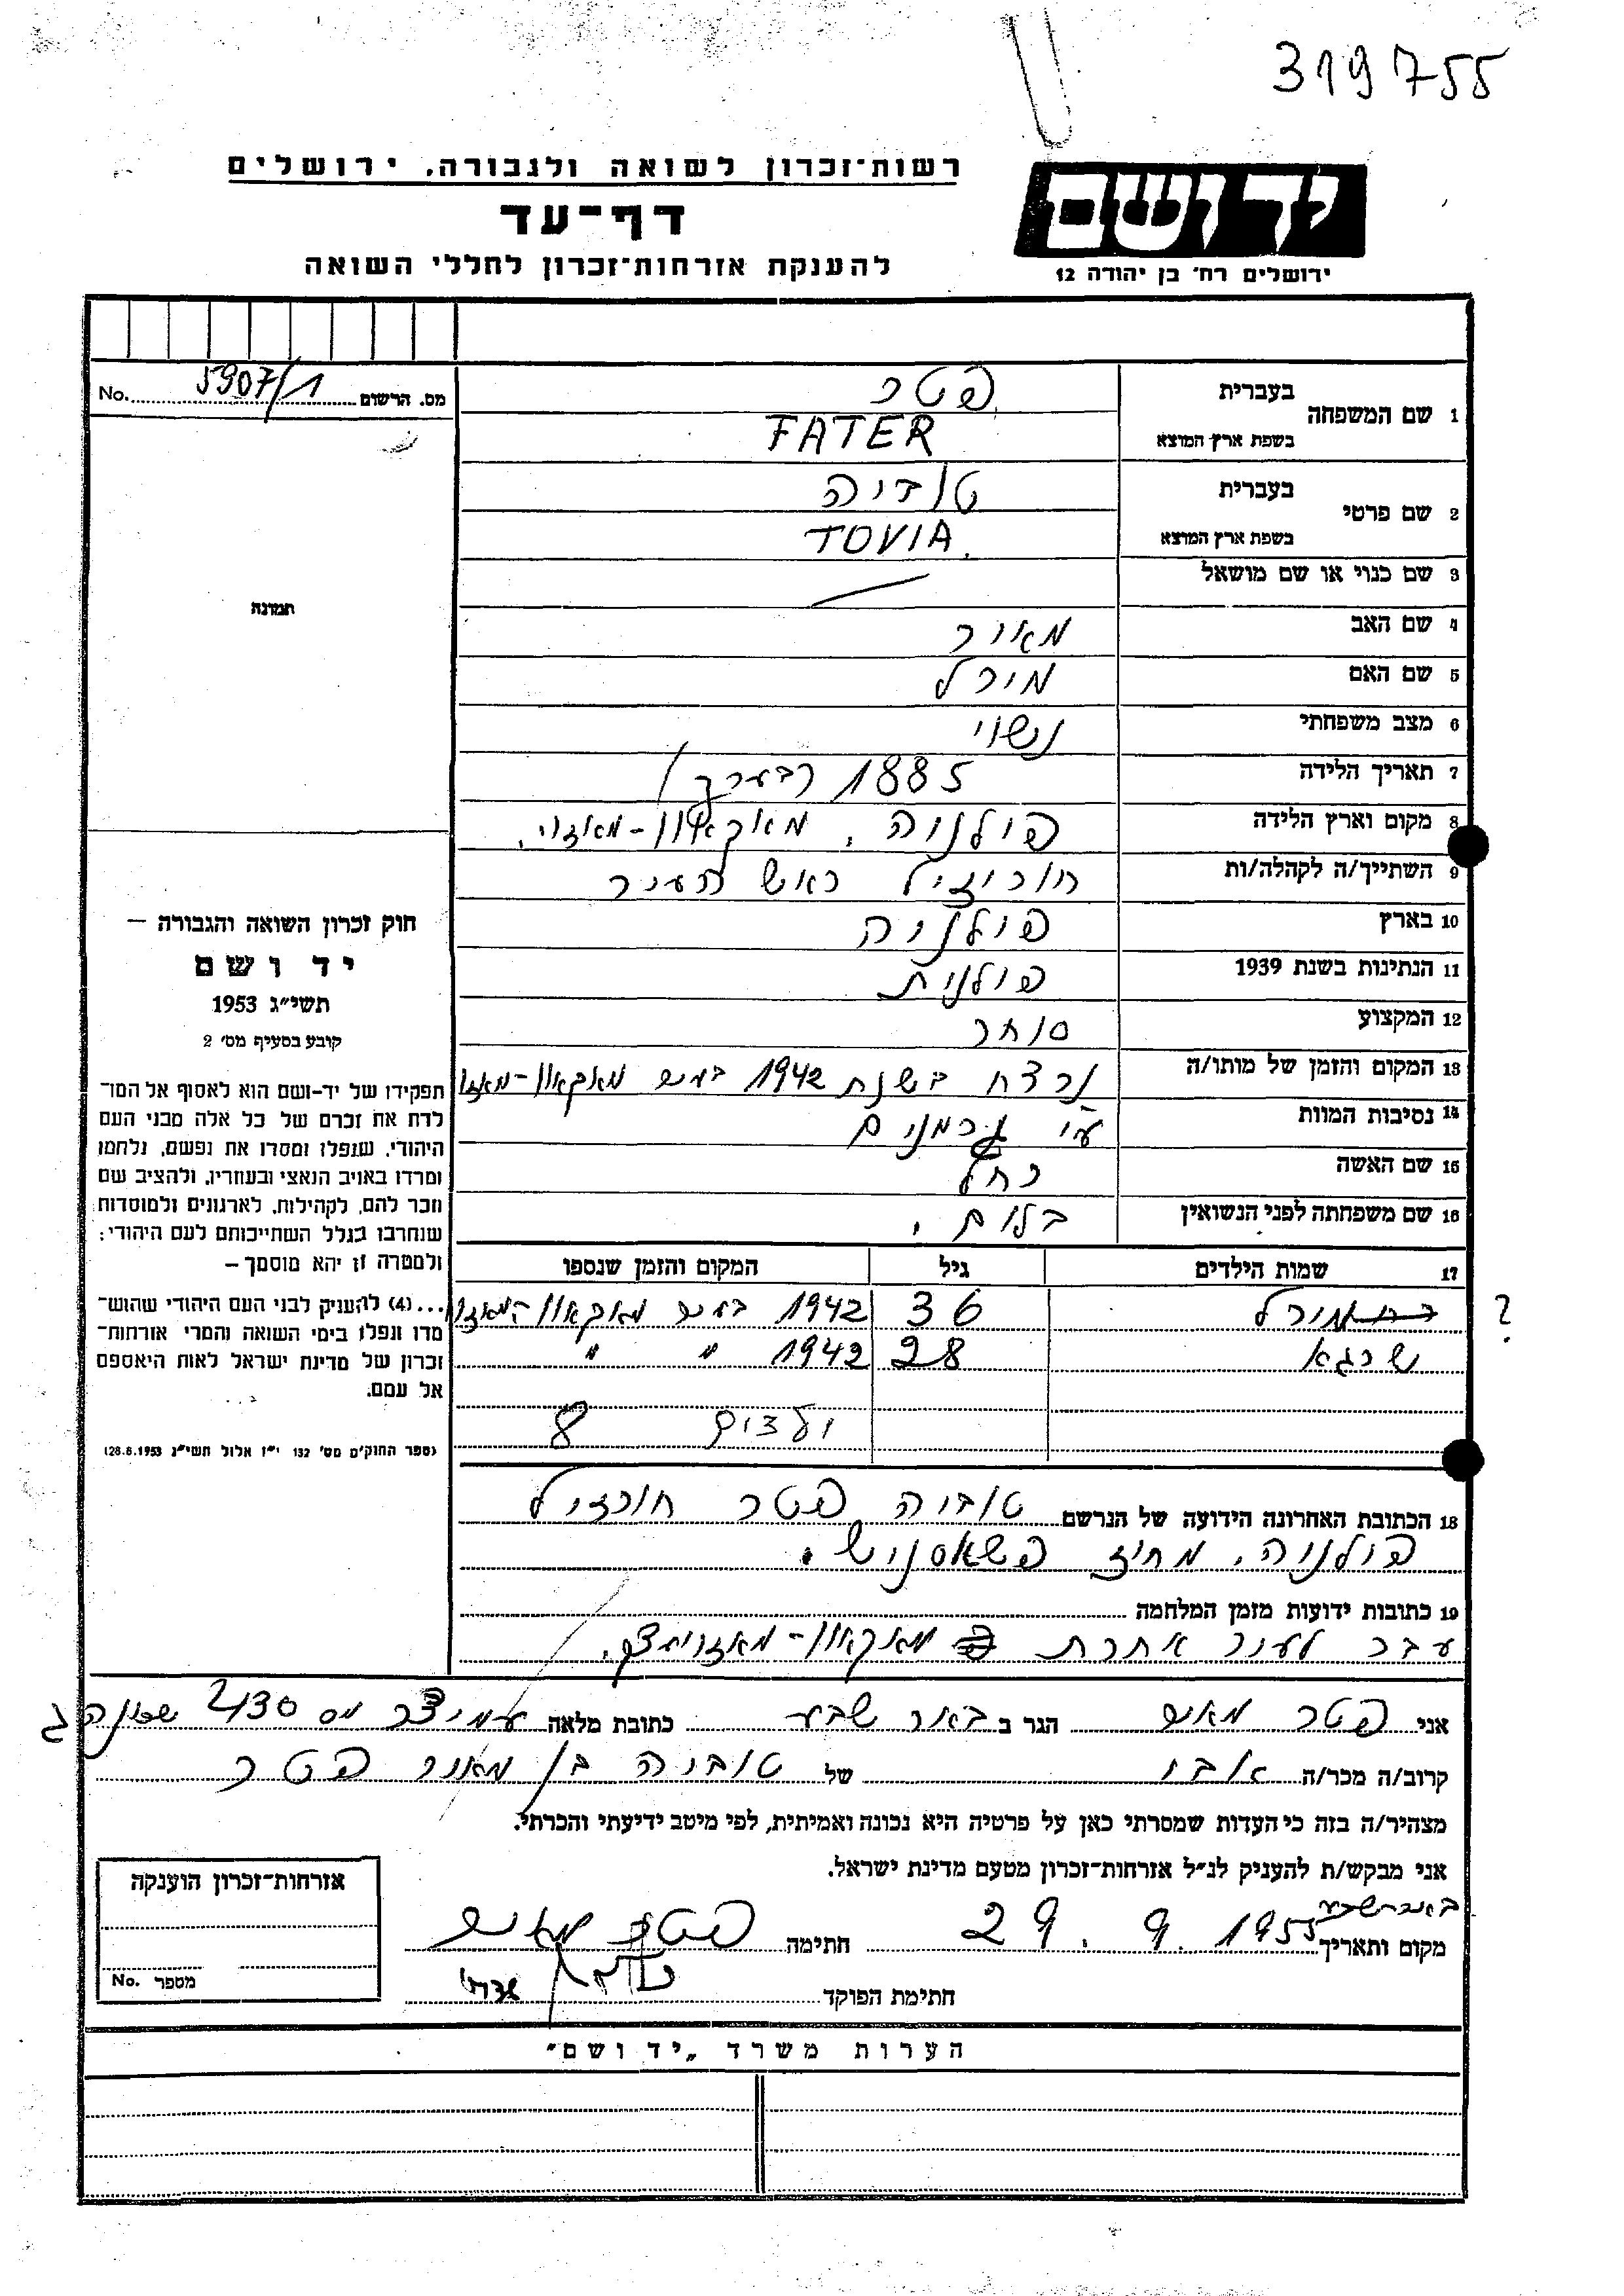 319755
רשות־זכרון לשואה ולגבורה, ירושלים
יד ושם
דף־עד
להענקת אזרחות־זכרון לחללי השואה
ירושלים רח' בן יהודה 12
No. 5907/1 מס. הרשום
1 שם המשפחה בעברית פטר
בשפת ארץ המוצא FATER
2 שם פרטי בעברית טוביה
בשפת ארץ המוצא TOVIA
3 שם כנוי או שם מושאל
4 שם האב מאיר
5 שם האם מירל
6 מצב משפחתי נשוי
7 תאריך הלידה 1885 (בערך)
8 מקום וארץ הלידה פולניה, מאקאוו-מאזוי.
9 השתייך/ה לקהלה/ות חורזיל ראש העיר
10 בארץ פולניה
11 הנתינות בשנת 1939 פולנית
12 המקצוע סוחר
13 המקום והזמן של מותו/ה נרצח בשנת 1942 מאקאוו-מאזו
14 נסיבות המוות ע״י גרמנים
15 שם האשה רחל
16 שם משפחתה לפני הנשואין בלום
תמונה
חוק זכרון השואה והגבורה —
יד ושם
תשי״ג 1953
קובע בסעיף מס׳ 2
תפקידו של יד-ושם הוא לאסוף אל המו־
לדת את זכרם של כל אלה מבני העם
היהודי, שנפלו ומסרו את נפשם, נלחמו
ומרדו באויב הנאצי ובעוזריו, ולהציב שם
וזכר להם, לקהילות, לארגונים ולמוסדות
שנחרבו בגלל השתייכותם לעם היהודי;
ולמטרה זו יהא מוסמך —
...(4) להעניק לבני העם היהודי שהוש־
מדו ונפלו בימי השואה והמרי אזרחות־
זכרון של מדינת ישראל לאות היאספם
אל עמם.
(ספר החוקים מס׳ 132 י״ז אלול תשי״ג 28.8.1953)
17 שמות הילדים גיל המקום והזמן שנספו
מירל 36 1942 מאקאוו-המאזו ?
שרגא 28 1942 " "
ילדים 8
18 הכתובת האחרונה הידועה של הנרשם טוביה פטר חורזיל
פולניה, מחוז פשאסניש.
19 כתובות ידועות מזמן המלחמה
עבר לעיר אחרת מאקאוו-מאזוויצק.
אני פטר הגר ב באר שבע כתובת מלאה מס 430 שכונה ג
קרוב/ה מכר/ה אבי של טוביה בן מאיר פטר
מצהיר/ה בזה כי העדות שמסרתי כאן על פרטיה היא נכונה ואמיתית, לפי מיטב ידיעתי והכרתי.
אני מבקש/ת להעניק לנ״ל אזרחות־זכרון מטעם מדינת ישראל.
באר שבע
מקום ותאריך 29.9.1955 חתימה פטר
חתימת הפוקד
אזרחות־זכרון הוענקה
No. מספר
הערות משרד „יד ושם״